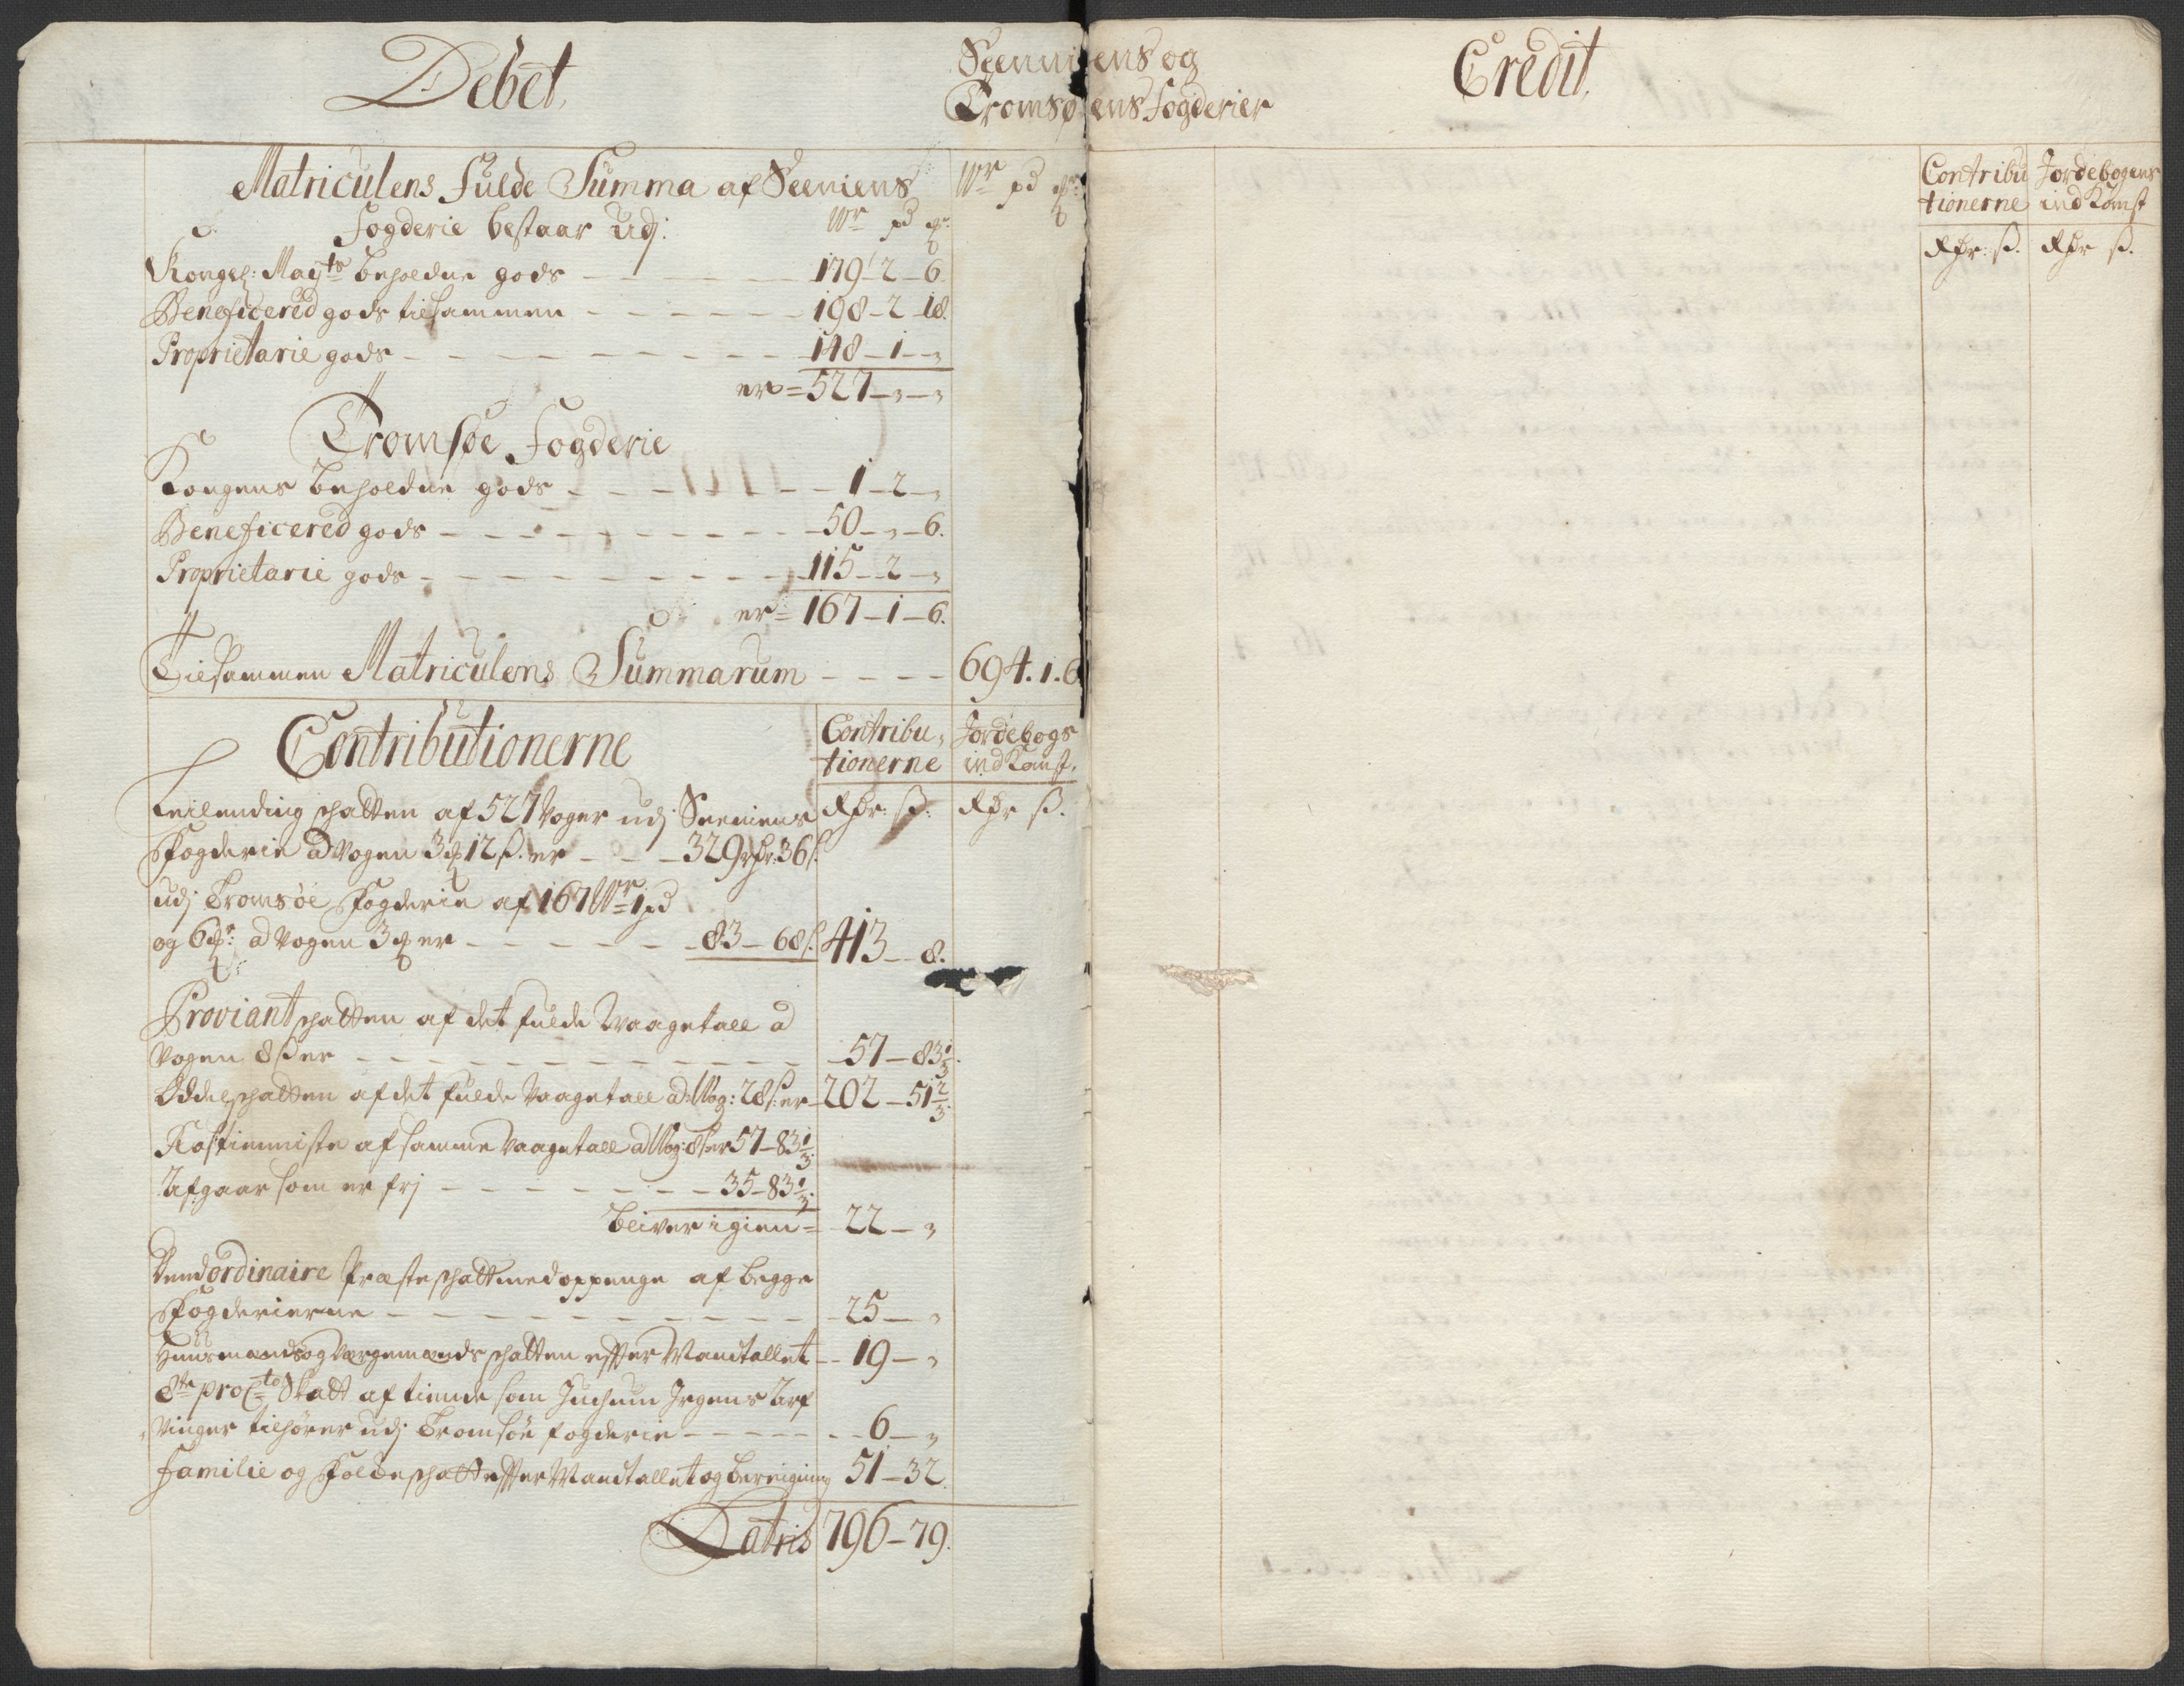 Debet.
Seeniens og
Tromsøens Fogderier
Credit.
Matriculens Fulde Summa af Seeniens Wr pd
Fogderie bestaar Udj: Wr pd
Kongel: Mayts beholdne gods — 179 - 2 - 6.
Beneficered gods tilsammen — 198 - 2 - 18.
Proprietarie gods — 148 - 1 - „
er = 527 - „ - „
Tromsøe Fogderie
Kongens beholdne gods — 1 - 2 - „
Beneficered gods — 50 - „ - 6.
Proprietarie gods — 115 - 2 - „
er = 167 - 1 - 6.
Tilsammen Matriculens Summarum — 694. 1. 6
Contributionerne
Contribu,
tionerne
Jordebogs
indKomst.
Rdr: ß: Rdr ß.
Leilending schatten af 527 Voger udj Seeniens
Fogderie a Vogen 3 12 ß. er — 329 rdr: 36 ß.
udj Tromsøe Fogderie af 167 Wr 1 pd
og 6 a Vogen 3 er — 83 - 68 ß. 413 - 8.
Proviant schatten af det fulde Waagetall a
Vogen 8 ß er — 57 - 83 1/3.
Oddelschatten af det fulde Vaagetall a Wog: 28 ß: er - 202 - 51 2/3.
Rostieniste af samme Vaagetall a Wog: 8 ß er 57 - 83 1/3.
Afgaar som er frj — 35 - 83 1/3.
bliver igien = 22 - „
Dend ordinaire Præsteschatt med oppenge af begge
Fogderierne — 25 - „
Huusmands og Værgemands schatten efter Mandtallet — 19 - „
8te pro Cto Skatt af tiende som Juchum Jrgens Arf
vinger tilhører udj Tromsøe fogderie — 6 - „
Familie og Folcke schatt efter Mandtallet og beregning 51 - 32.
Latris 796 - 79.
Contribu
tionerne
Jordebogens
indKomst
Rdr: ß. Rdr ß.